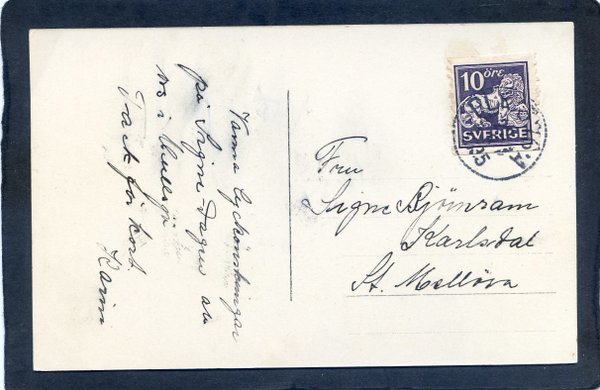 Varma lyckönskningar
på Signe-dagen av
i
Tack för kort.
Karin
10 öre
SVERIGE
Fru
Signe
Karlsdal
St. Mellösa